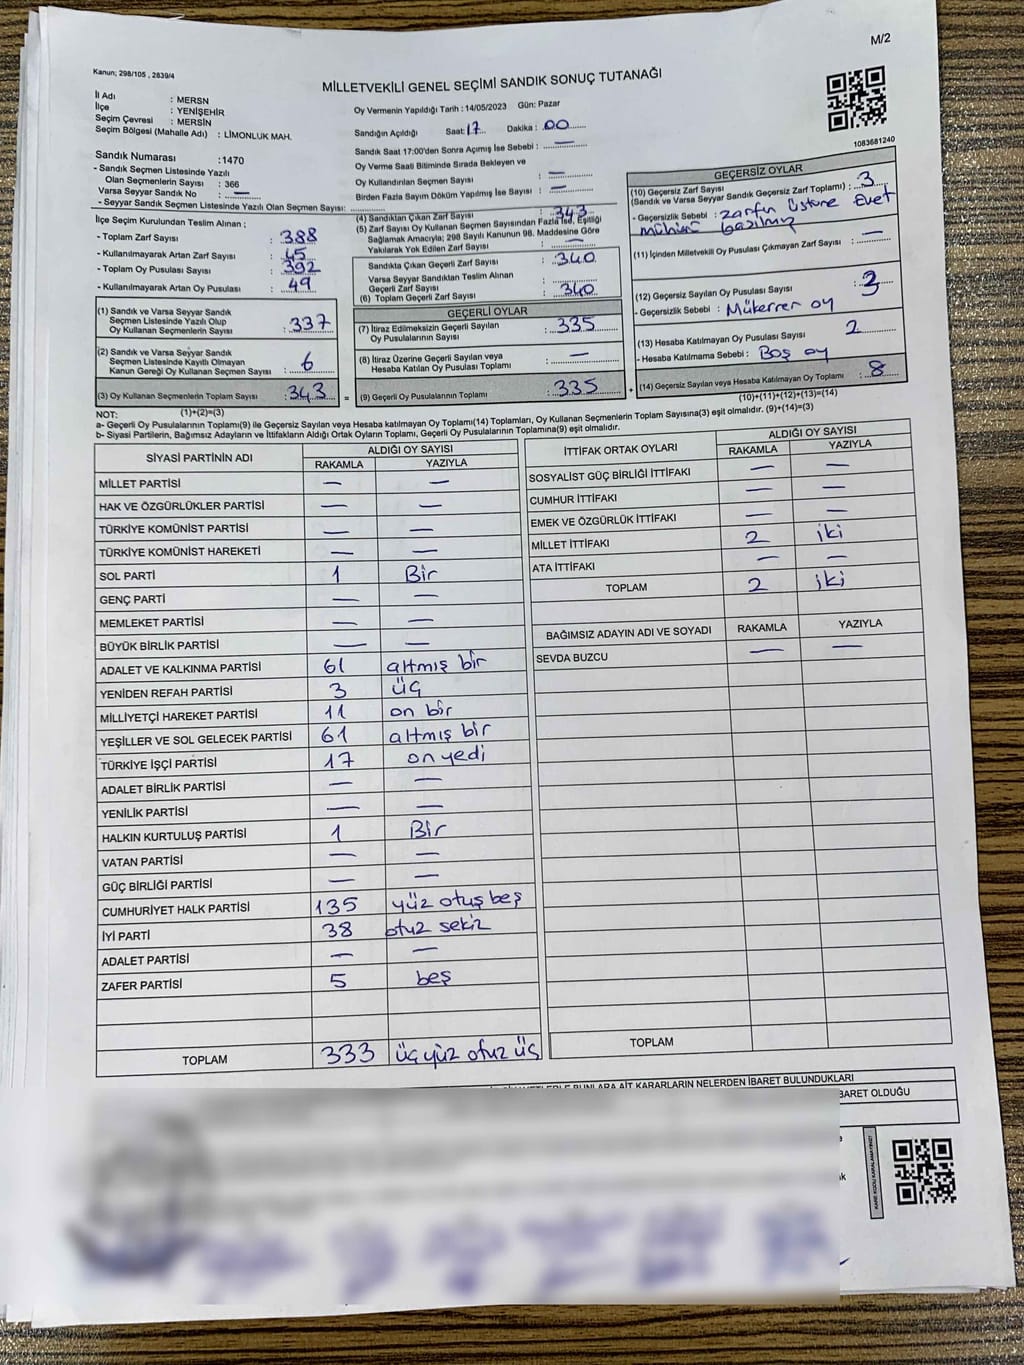 M/2
Kanun; 298/105 , 2839/4
MİLLETVEKİLİ GENEL SEÇİMİ SANDIK SONUÇ TUTANAĞI
İl Adı : MERSN
İlçe : YENİŞEHİR
Seçim Çevresi : MERSİN
Seçim Bölgesi (Mahalle Adı) : LİMONLUK MAH.
Sandık Numarası :1470
- Sandık Seçmen Listesinde Yazılı
Olan Seçmenlerin Sayısı : 366
Varsa Seyyar Sandık No : —
- Seyyar Sandık Seçmen Listesinde Yazılı Olan Seçmen Sayısı: ..............
Oy Vermenin Yapıldığı Tarih : 14/05/2023 Gün: Pazar
Sandığın Açıldığı Saat: 17 Dakika : 00
Sandık Saat 17:00'den Sonra Açımış İse Sebebi : —
Oy Verme Saati Bitiminde Sırada Bekleyen ve
Oy Kullandırılan Seçmen Sayısı : —
Birden Fazla Sayım Döküm Yapılmış İse Sayısı : —
1083681240
İlçe Seçim Kurulundan Teslim Alınan ;
- Toplam Zarf Sayısı : 388
- Kullanılmayarak Artan Zarf Sayısı : 45
- Toplam Oy Pusulası Sayısı : 392
- Kullanılmayarak Artan Oy Pusulası : 49
(1) Sandık ve Varsa Seyyar Sandık
Seçmen Listesinde Yazılı Olup
Oy Kullanan Seçmenlerin Sayısı : 337
(2) Sandık ve Varsa Seyyar Sandık
Seçmen Listesinde Kayıtlı Olmayan
Kanun Gereği Oy Kullanan Seçmen Sayısı : 6
(3) Oy Kullanan Seçmenlerin Toplam Sayısı : 343
(1)+(2)=(3)
(4) Sandıktan Çıkan Zarf Sayısı : 343
(5) Zarf Sayısı Oy Kullanan Seçmen Sayısından Fazla İse, Eşitliği
Sağlamak Amacıyla; 298 Sayılı Kanunun 98. Maddesine Göre
Yakılarak Yok Edilen Zarf Sayısı : —
Sandıkta Çıkan Geçerli Zarf Sayısı : 340
Varsa Seyyar Sandıktan Teslim Alınan
Geçerli Zarf Sayısı
(6) Toplam Geçerli Zarf Sayısı : 340
GEÇERLİ OYLAR
(7) İtiraz Edilmeksizin Geçerli Sayılan
Oy Pusulalarının Sayısı : 335
(8) İtiraz Üzerine Geçerli Sayılan veya
Hesaba Katılan Oy Pusulası Toplamı : —
= (9) Geçerli Oy Pusulalarının Toplamı : 335 +
GEÇERSİZ OYLAR
(10) Geçersiz Zarf Sayısı
(Sandık ve Varsa Seyyar Sandık Geçersiz Zarf Toplamı) : 3
- Geçersizlik Sebebi : zarfın üstüne Evet
mühürü basılmış
(11) İçinden Milletvekili Oy Pusulası Çıkmayan Zarf Sayısı : —
(12) Geçersiz Sayılan Oy Pusulası Sayısı : 3
- Geçersizlik Sebebi : Mükerrer oy
(13) Hesaba Katılmayan Oy Pusulası Sayısı 2
- Hesaba Katılmama Sebebi : Boş oy
(14) Geçersiz Sayılan veya Hesaba Katılmayan Oy Toplamı : 8
(10)+(11)+(12)+(13)=(14)
NOT:
a- Geçerli Oy Pusulalarının Toplamı(9) ile Geçersiz Sayılan veya Hesaba Katılmayan Oy Toplamı(14) Toplamları, Oy Kullanan Seçmenlerin Toplam Sayısına(3) eşit olmalıdır. (9)+(14)=(3)
b- Siyasi Partilerin, Bağımsız Adayların ve İttifakların Aldığı Ortak Oyların Toplamı, Geçerli Oy Pusulalarının Toplamına(9) eşit olmalıdır.
SİYASİ PARTİNİN ADI ALDIĞI OY SAYISI
RAKAMLA YAZIYLA
MİLLET PARTİSİ — —
HAK VE ÖZGÜRLÜKLER PARTİSİ — —
TÜRKİYE KOMÜNİST PARTİSİ — —
TÜRKİYE KOMÜNİST HAREKETİ — —
SOL PARTİ 1 Bir
GENÇ PARTİ — —
MEMLEKET PARTİSİ — —
BÜYÜK BİRLİK PARTİSİ — —
ADALET VE KALKINMA PARTİSİ 61 altmış bir
YENİDEN REFAH PARTİSİ 3 üç
MİLLİYETÇİ HAREKET PARTİSİ 11 on bir
YEŞİLLER VE SOL GELECEK PARTİSİ 61 altmış bir
TÜRKİYE İŞÇİ PARTİSİ 17 on yedi
ADALET BİRLİK PARTİSİ — —
YENİLİK PARTİSİ — —
HALKIN KURTULUŞ PARTİSİ 1 Bir
VATAN PARTİSİ — —
GÜÇ BİRLİĞİ PARTİSİ — —
CUMHURİYET HALK PARTİSİ 135 yüz otuş beş
İYİ PARTİ 38 otuz sekiz
ADALET PARTİSİ — —
ZAFER PARTİSİ 5 beş
TOPLAM 333 üç yüz otuz üç
İTTİFAK ORTAK OYLARI ALDIĞI OY SAYISI
RAKAMLA YAZIYLA
SOSYALİST GÜÇ BİRLİĞİ İTTİFAKI — —
CUMHUR İTTİFAKI — —
EMEK VE ÖZGÜRLÜK İTTİFAKI — —
MİLLET İTTİFAKI 2 iki
ATA İTTİFAKI — —
TOPLAM 2 iki
BAĞIMSIZ ADAYIN ADI VE SOYADI RAKAMLA YAZIYLA
SEVDA BUZCU — —
TOPLAM
BUNLARA AİT KARARLARIN NELERDEN İBARET BULUNDUKLARI
BARET OLDUĞU